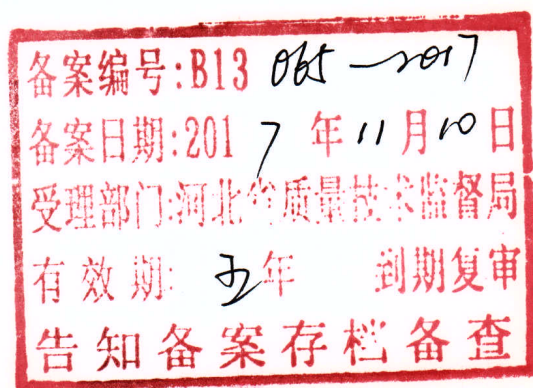 备案编号:B13 065-2017
备案日期:2017年11月10日
受理部门:河北省质量技术监督局
有效期:五年 到期复审
告知备案存档备查